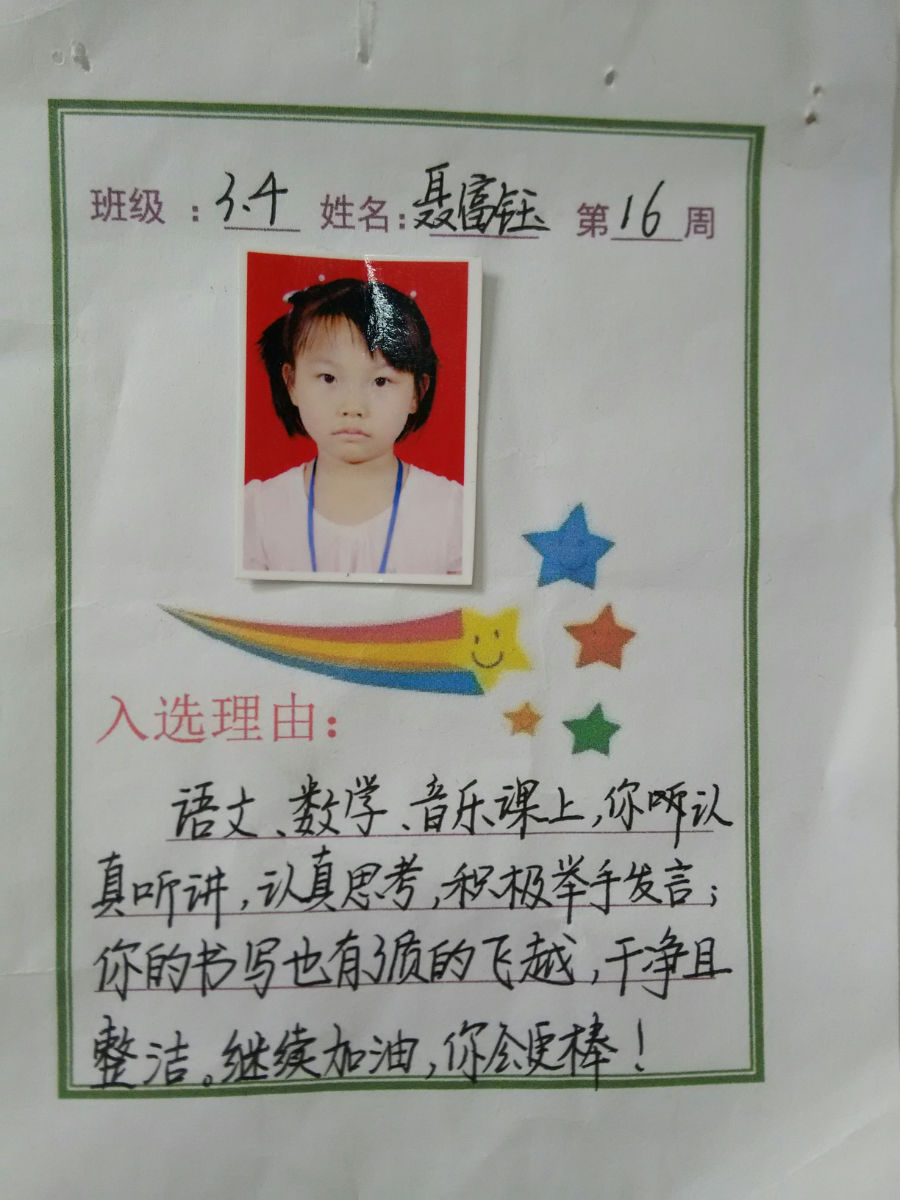 班级：3.4 姓名：聂富钰 第16周
入选理由：
语文、数学、音乐课上，你听认
真听讲，认真思考，积极举手发言；
你的书写也有了质的飞越，干净且
整洁。继续加油，你会更棒！